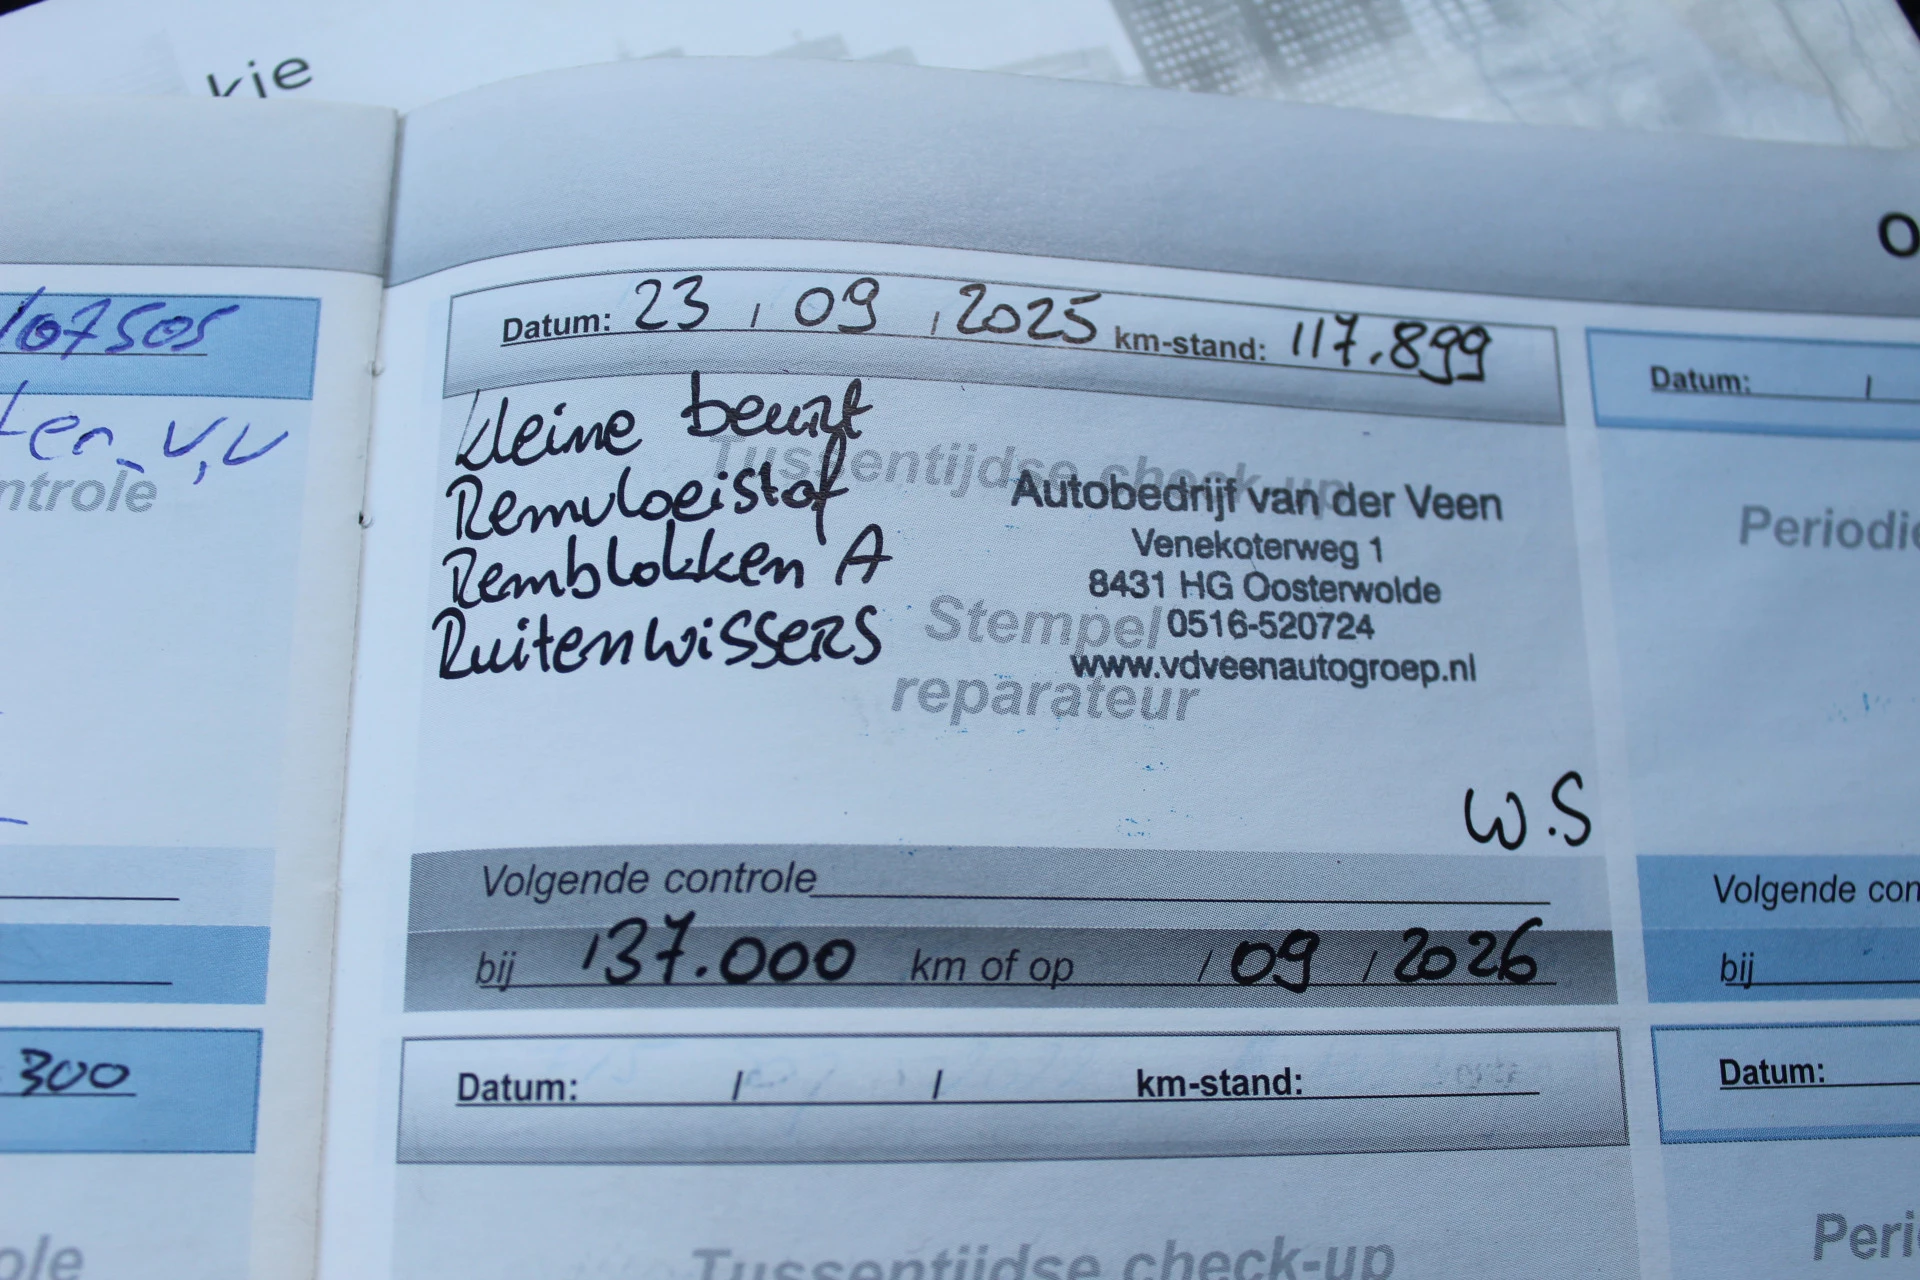 kie
107505
ntrole
300
ole
Datum: 23 / 09 / 2025 km-stand: 117.899
Kleine beurt
Remvloeistof
Remblokken A
Ruitenwissers
Tussentijdse check-up
Stempel
reparateur
Autobedrijf van der Veen
Venekoterweg 1
8431 HG Oosterwolde
0516-520724
www.vdveenautogroep.nl
W.S
Volgende controle
bij 137.000 km of op / 09 / 2026
Datum: / / km-stand:
Tussentijdse check-up
O
Datum: /
Periodie
Volgende con
bij
Datum:
Peri